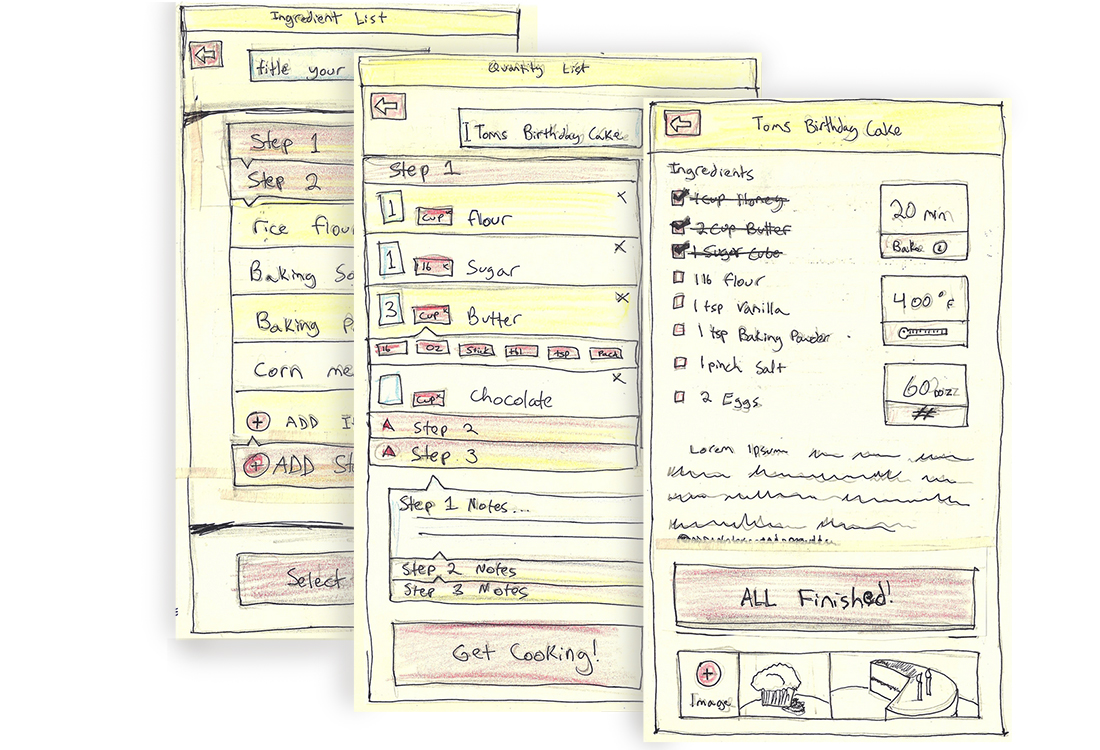 Ingredient List
title your
Step 1
Step 2
rice flou
Baking So
Baking P
Corn me
ADD I
ADD St
Select
Quantity List
Toms Birthday Cake
Step 1
1 Cup x flour x
1 lb x Sugar x
3 Cup x Butter x
lb OZ Stick tbl tsp Pack
Cup x Chocolate x
Step 2
Step 3
Step 1 Notes...
Step 2 Notes
Step 3 Notes
Get Cooking!
Toms Birthday Cake
Ingredients
1 Cup Honey
2 Cup Butter
1 Sugar Cube
1 lb flour
1 tsp Vanilla
1 tsp Baking Powder
1 pinch Salt
2 Eggs
20 min
Bake
400°F
60
#
Lorem Ipsum
ALL Finished!
Image